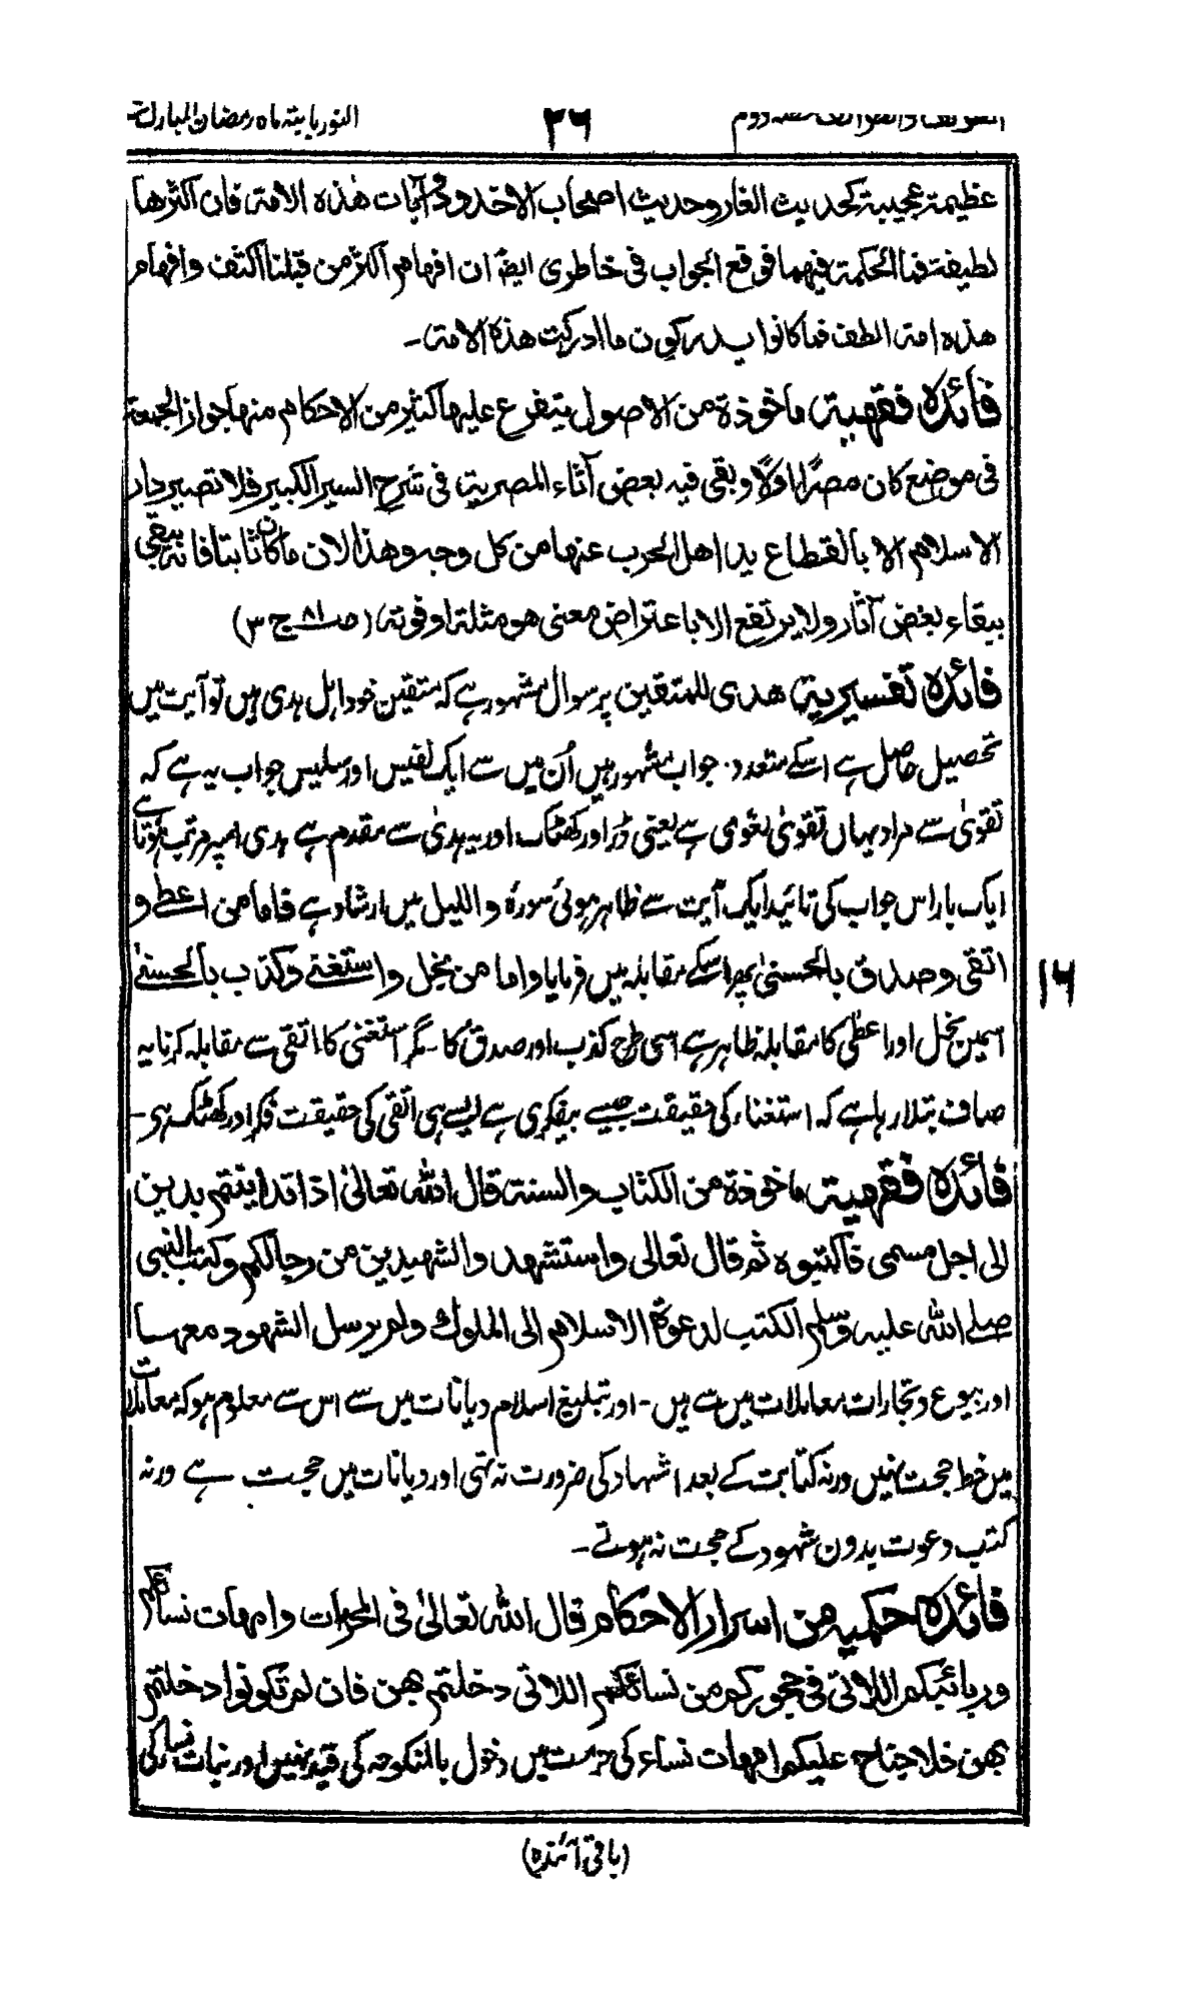 النور بابتہ ماہ رمضان المبارک
۳۶
حصہ دوم
عظیمۃ عجیبۃ کحدیث الغار وحدیث اصحاب الاخدود وآیات ھذہ الامۃ فان اکثرھا
لطیفۃ فما الحکمۃ فیھما فوقع الجواب فی خاطری ایضا ان افھام اکثر من قبلنا اکثف وافھام
ھذہ امۃ الطف فما کانوا یدرکون ما ادرکت ھذہ الامۃ۔
فائدہ فقھیۃ ماخوذۃ من الاصول یتفرع علیھا کثیر من الاحکام منھا جواز الجمعۃ
فی موضع کان مصرًا اولًا وبقی فیہ بعض آثاء المصریۃ فی شرح السیر الکبیر فلا تصیر دار
الاسلام الا بالقطاع ید اھل الحرب عنھا من کل وجہ وھذا لان ماکان ثابتا فانہ یبقی
ببقاء بعض آثارہ ولا یرتفع الا باعتراض معنی ھو مثلۃ اوفوتہ (صـ۸۱ ج ۳)
فائدہ تفسیریۃ ھدی للمتقین پر سوال مشہور ہے کہ متقین خود اہل ہدی ہیں تو آیت میں
تحصیل حاصل ہے اسکے متعدد جواب مشہور ہیں اُن میں سے ایک نفیس اور سلیس جواب یہ ہے کہ
تقویٰ سے مراد یہاں تقویٰ لغوی ہے یعنی ڈر اور کھٹک اور یہ ہدیٰ سے مقدم ہے ہدی اسپر مرتب ہوتا ہے
ایک بار اس جواب کی تائید ایک آیت سے ظاہر ہوئی سورۂ واللیل میں ارشاد ہے فاما من اعطے و
اتقی وصدق بالحسنیٰ پھر اسکے مقابلہ میں فرمایا واما من بخل واستغنے وکذب بالحسنیٰ
۱۶
اسمین بخل اور اعطی کا مقابلہ ظاہر ہے اسی طرح کذب اور صدق کا۔ مگر استغنی کا اتقی سے مقابلہ کرنا یہ
صاف بتلا رہا ہے کہ استغناء کی حقیقت جیسے بیفکری ہے ایسے ہی اتقی کی حقیقت فکر اور کھٹک ہے۔
فائدہ فقھیۃ ماخوذۃ من الکتاب والسنۃ قال اللہ تعالیٰ اذا تداینتم بدین
الی اجل مسمی فاکتبوہ ثم قال تعالی واستشھدوا شھیدین من رجالکم وکتب النبی
صلے اللہ علیہ وسلم الکتب لدعوۃ الاسلام الی الملوک ولم یرسل الشھود معھا
اور بیوع و تجارات معاملات میں سے ہیں۔ اور تبلیغ اسلام دیانات میں سے اس سے معلوم ہوکہ معاملات
میں خط حجت نہیں ورنہ کتابت کے بعد اشہاد کی ضرورت نہ تھی اور دیانات میں حجت ہے ورنہ
کتب دعوت بدون شہود کے حجت نہ ہوتے۔
فائدہ حکمیہ من اسرار الاحکام قال اللہ تعالیٰ فی المحرمات وامھات نسائکم
وربائبکم اللاتی فی حجورکم من نسائکم اللاتی دخلتم بھن فان لم تکونوا دخلتم
بھن فلا جناح علیکم امھات نساء کی حرمت میں دخول بالمنکوحہ کی قید نہیں اور بنات نساء کی
(باقی آئندہ)